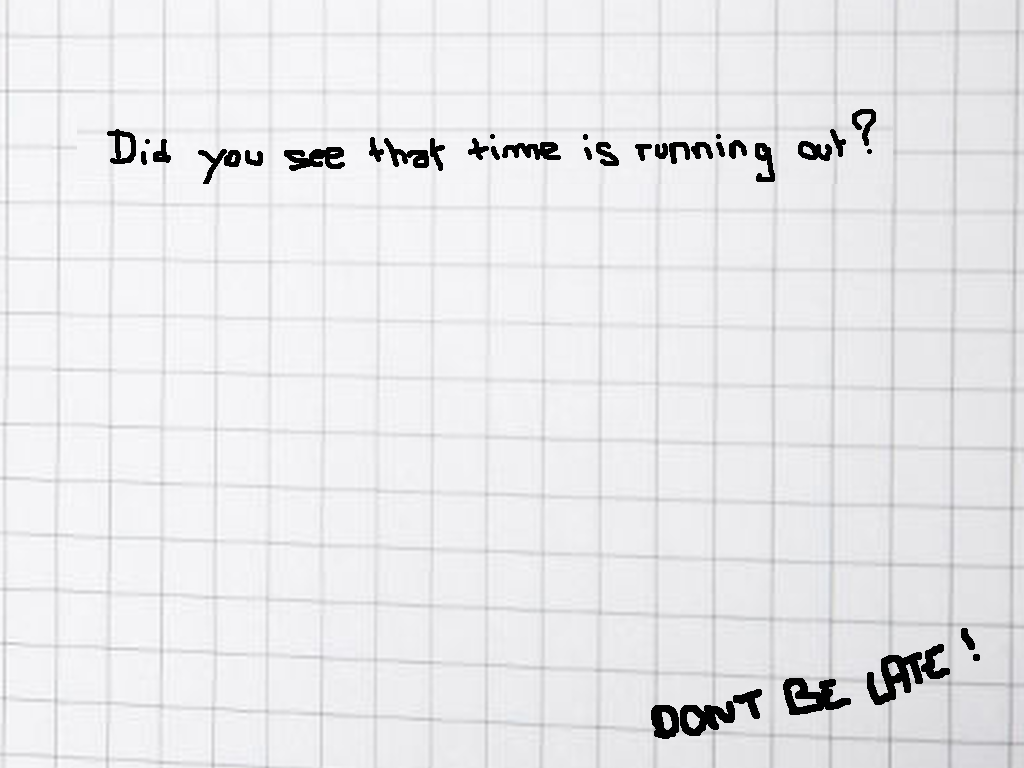 Did you see that time is running out?
DONT BE LATE!